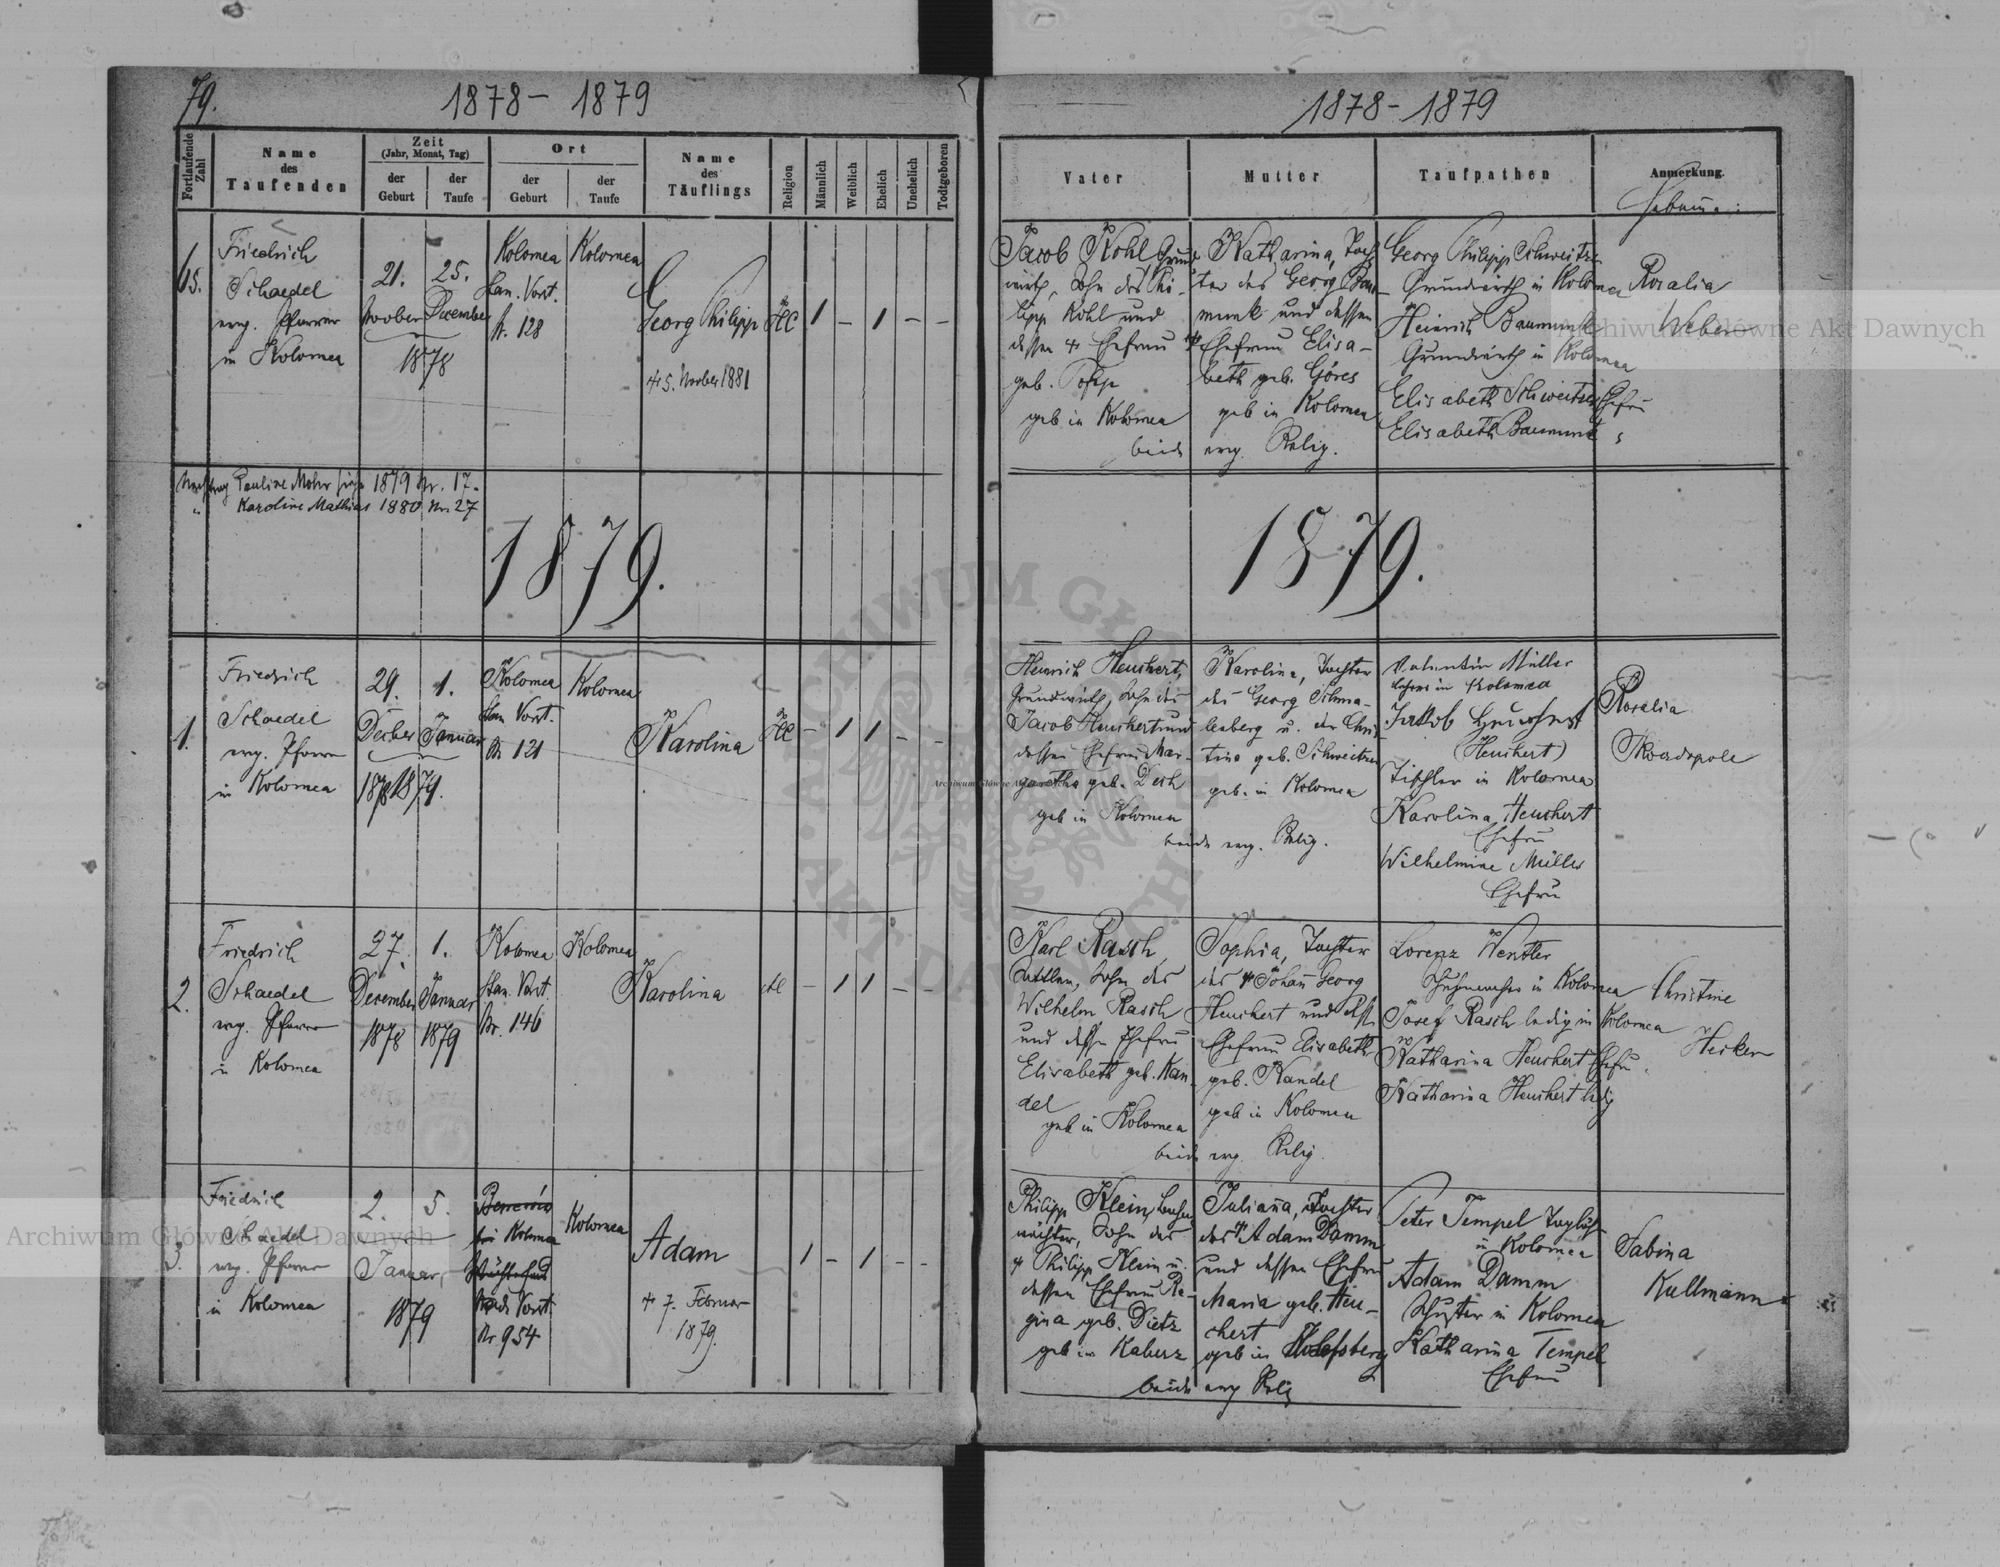 79.
1878 - 1879
Fortlaufende Zahl
Name
des
Taufenden
Zeit
(Jahr, Monat, Tag)
der
Geburt
der
Taufe
Ort
der
Geburt
der
Taufe
Name
des
Täuflings
Religion
Männlich
Weiblich
Ehelich
Unehelich
Todtgeboren
65.
Friedrich
Schaedel
evg. Pfarrer
in Kolomea
21.
Novber
25.
December
1878
Kolomea
Stan. Vorst.
Nr. 128
Kolomea
Georg Philipp
HC
1 - 1 - -
+ 5. Novber 1881
Pauline Mohr 1879 Nr. 17.
" Karoline Mathias 1880 Nr. 27
1879.
1.
Friedrich
Schaedel
evg. Pfarrer
in Kolomea
29.
Decber
1878
1.
Januar
1879.
Kolomea
Stan Vorst.
Nr. 121
Kolomea
Karolina
HC
- 1 1 - -
2.
Friedrich
Schaedel
evg. Pfarrer
in Kolomea
27.
December
1878
1.
Januar
1879
Kolomea
Stan. Vorst.
Nr. 146
Kolomea
Karolina
HC
- 1 1 - -
3.
Friedrich
Schaedel
evg. Pfarrer
in Kolomea
2. 5.
Januar
1879
bei Kolomea
Vorst
Nr. 954
Kolomea
Adam
+ 7. Februar
1879.
1 - 1 - -
1878 - 1879
Vater
Mutter
Taufpathen
Anmerkung.
Jacob Kohl Grund-
wirth, Sohn des Phi-
lipp Kohl und
dessen + Ehefrau
geb.
geb in Kolomea
Katharina, Toch-
ter des Georg Bau-
munk und dessen
+ Ehefrau Elisa-
beth geb. Göres
geb in Kolomea
beide evg. Relig.
Georg Philipp Schweitzer
Grundwirth in Kolomea
Heinrich Baumunk
Grundwirth in Kolomea
Elisabeth Schweitzer Ehefru
Elisabeth Baumunk "
Rosalia
Weber
1879.
Heinrich Heuchert,
Grundwirth, Sohn des
Jacob Heuchert und
dessen Ehefrau Mar-
geb. Desh
geb in Kolomea
Karolina, Tochter
des Georg Schma-
lenberg u. der Chris
tina geb. Schweitzer
geb. in Kolomea
beide evg. Relig.
Valentin Müller
in Kolomea
Jakob Heuchert
(Heuchert)
Tischler in Kolomea
Karolina Heuchert
Ehefru
Wilhelmine Müller
Ehefru
Rosalia
Karl Rasch,
Sohn des
Wilhelm Rasch
und dessen Ehefru
Elisabeth geb. Kan-
del
geb in Kolomea
Sophia, Tochter
des + Johan Georg
Heuchert und
Ehefrau Elisabeth
geb. Kandel
geb in Kolomea
beide evg. Relig.
Lorenz Wendler
Schuhmacher in Kolomea
Josef Rasch ledig in Kolomea
Katharina Heuchert Ehefru
Katharina Heuchert ledig
Christine
Philipp Klein,
wächter, Sohn des
+ Philipp Klein u.
dessen Ehefrau Re-
gina geb. Dietz
geb in
Juliana, Tochter
des + Adam Damm
und dessen Ehefru
Maria geb. Heu-
chert
geb in
beide evg Relig
Peter Tempel
in Kolomea
Adam Damm
Schuster in Kolomea
Katharina Tempel
Ehefru
Sabina
Kullmann
Archiwum Główne Akt Dawnych
Archiwum Główne Akt Dawnych
Archiwum Główne Akt Dawnych